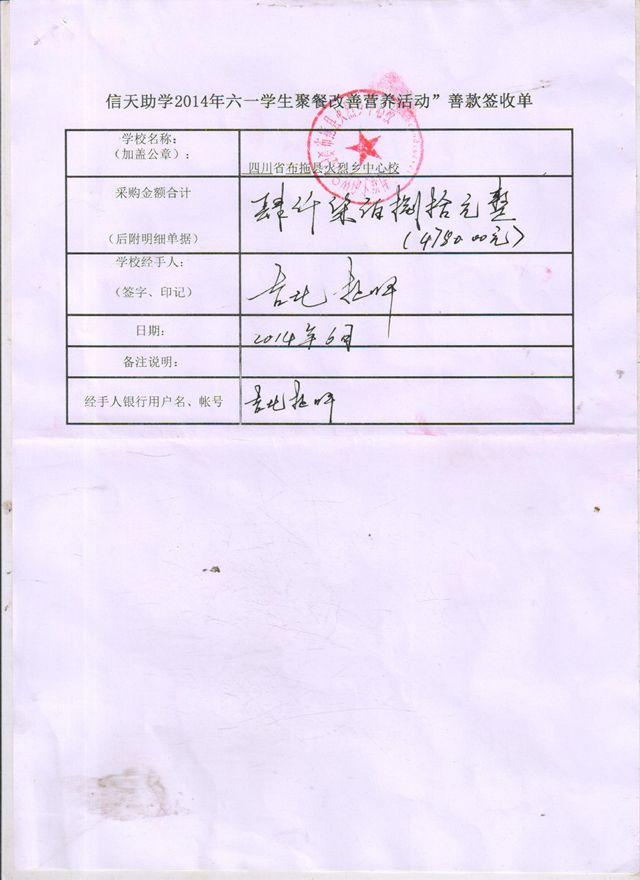 信天助学2014年六一学生聚餐改善营养活动”善款签收单
学校名称：
（加盖公章）：
四川省布拖县火烈乡中心校
采购金额合计
（后附明细单据）
肆仟柒佰捌拾元整
（4780.00元）
学校经手人：
（签字、印记）
日期：
2014年6月
备注说明：
经手人银行用户名、帐号